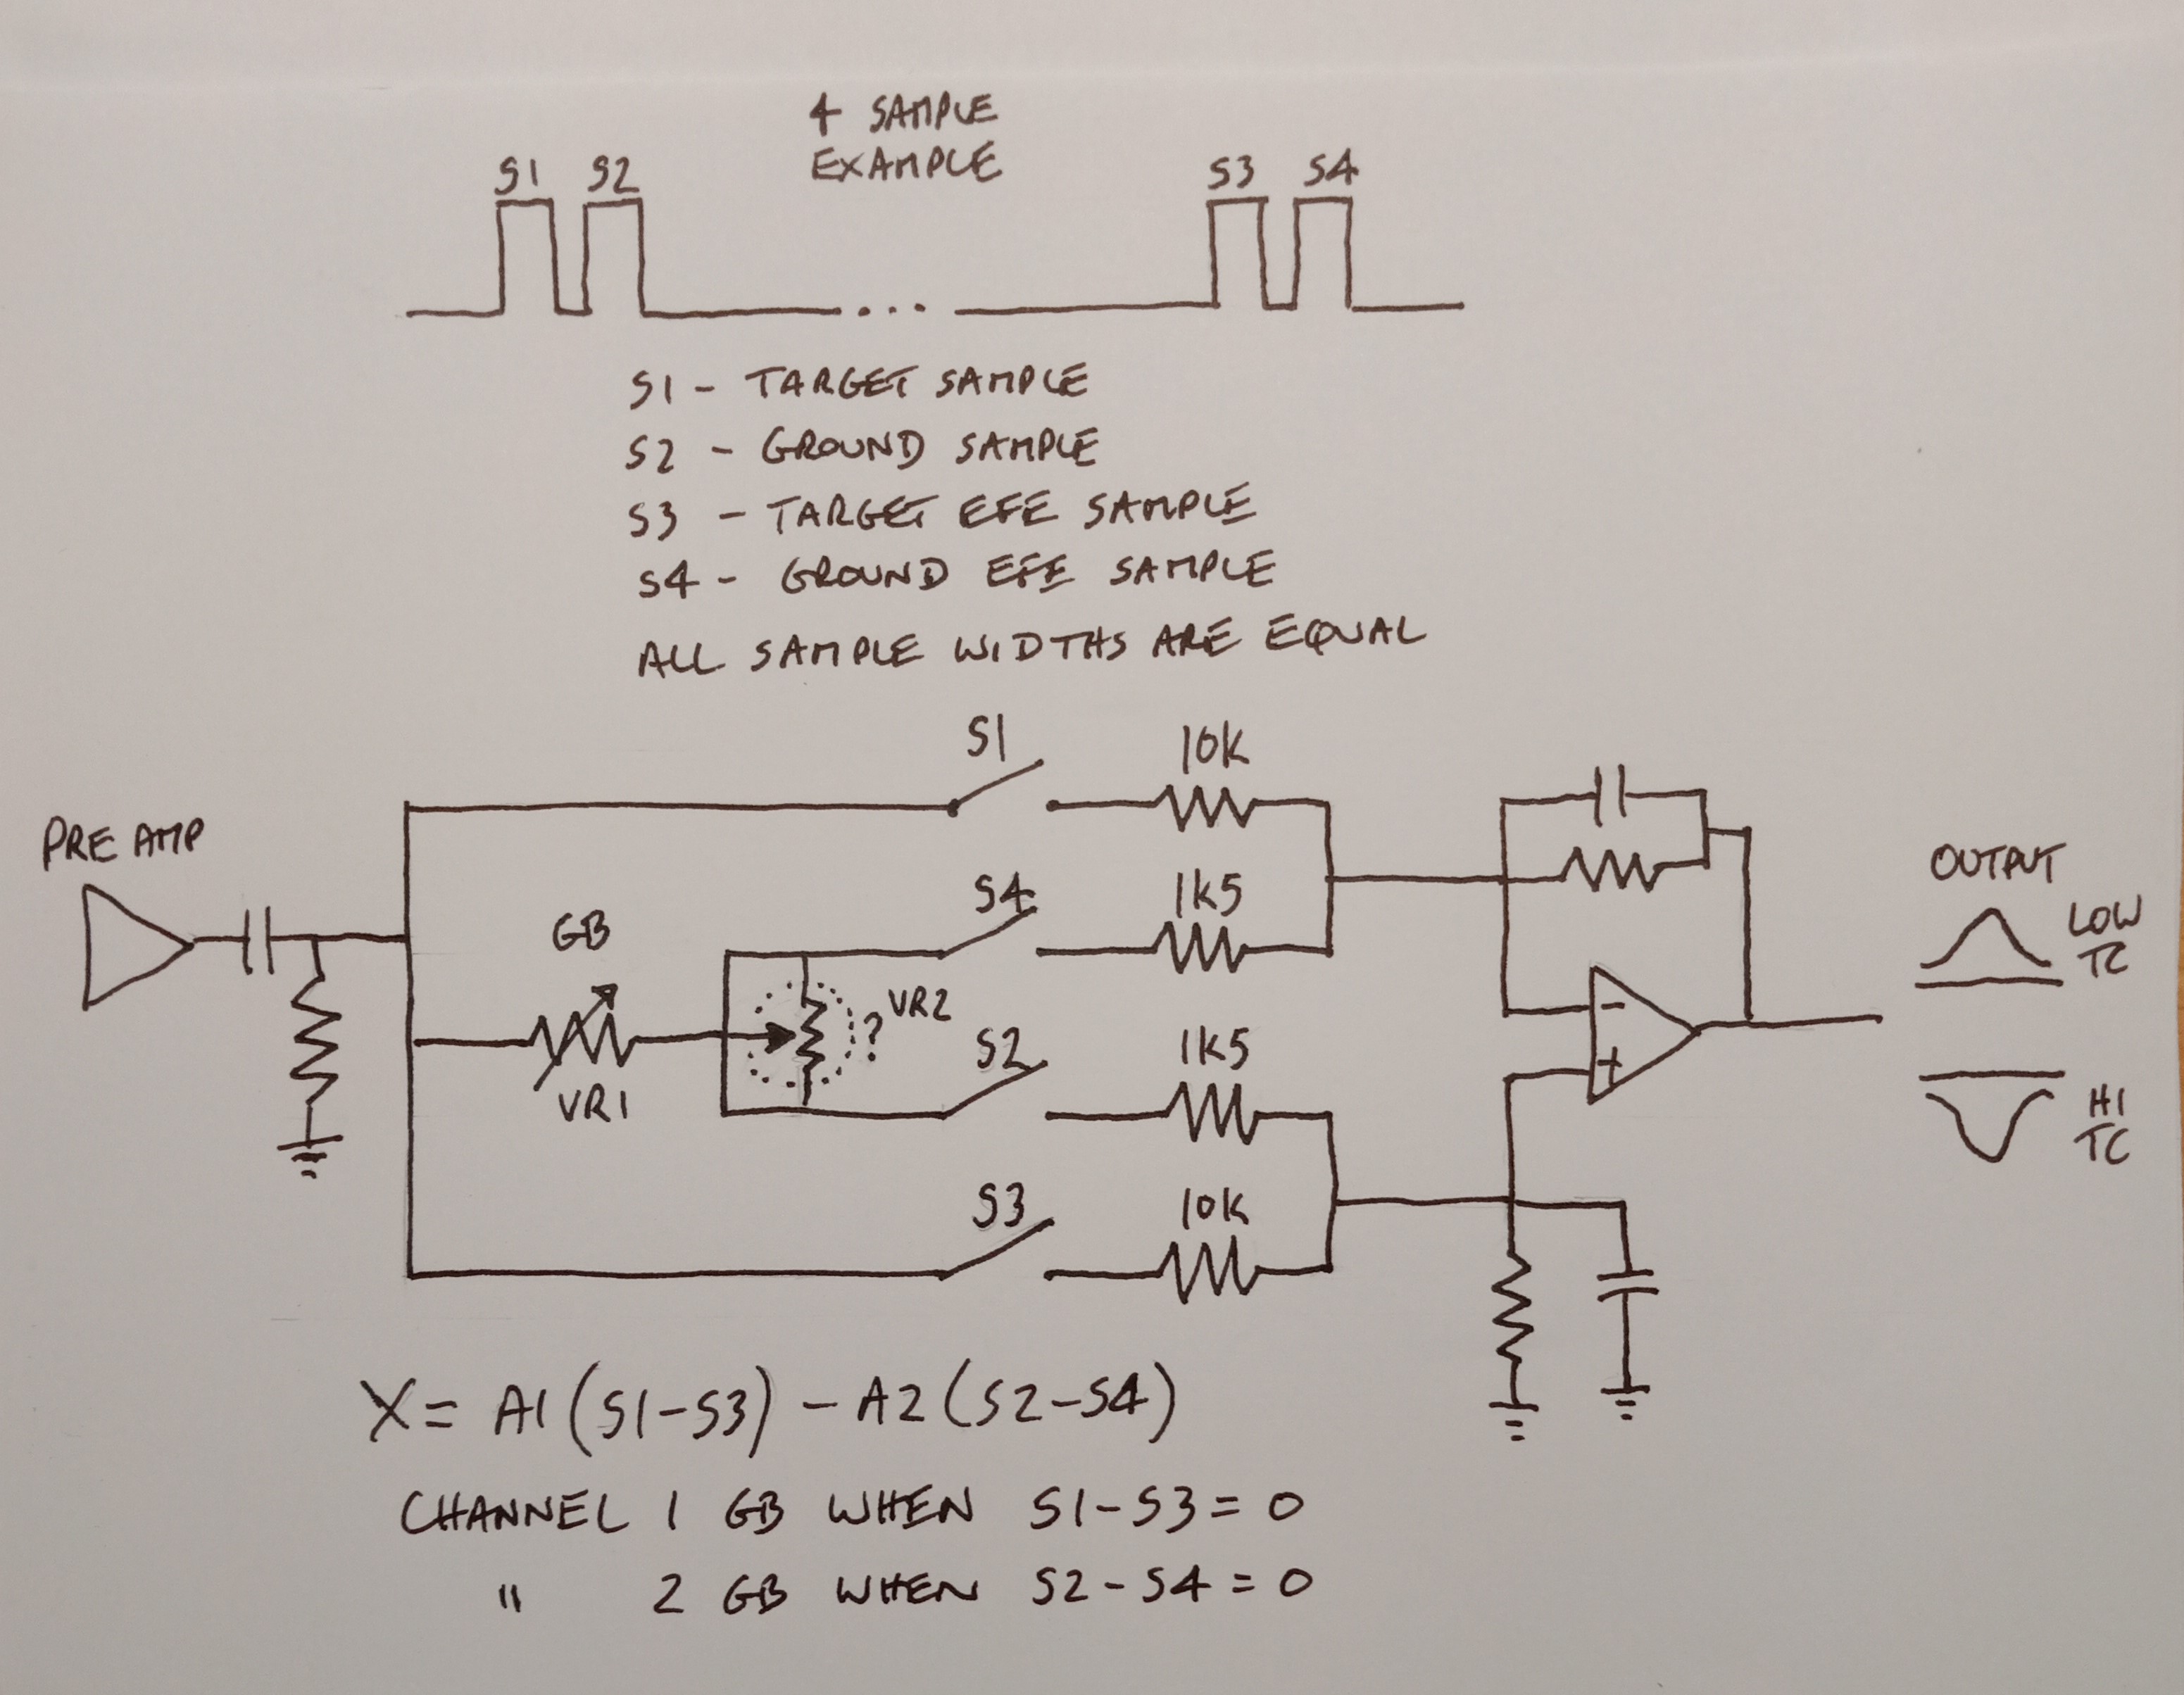 4 SAMPLE
EXAMPLE
S1 S2 S3 S4
...
S1 - TARGET SAMPLE
S2 - GROUND SAMPLE
S3 - TARGET EFE SAMPLE
S4 - GROUND EFE SAMPLE
ALL SAMPLE WIDTHS ARE EQUAL
S1 10K
PRE AMP
S4 1K5
OUTPUT
LOW
TC
GB
VR2
?
VR1
S2 1K5
-
+
HI
TC
S3 10K
X = A1(S1-S3) - A2(S2-S4)
CHANNEL 1 GB WHEN S1-S3 = 0
" 2 GB WHEN S2-S4 = 0